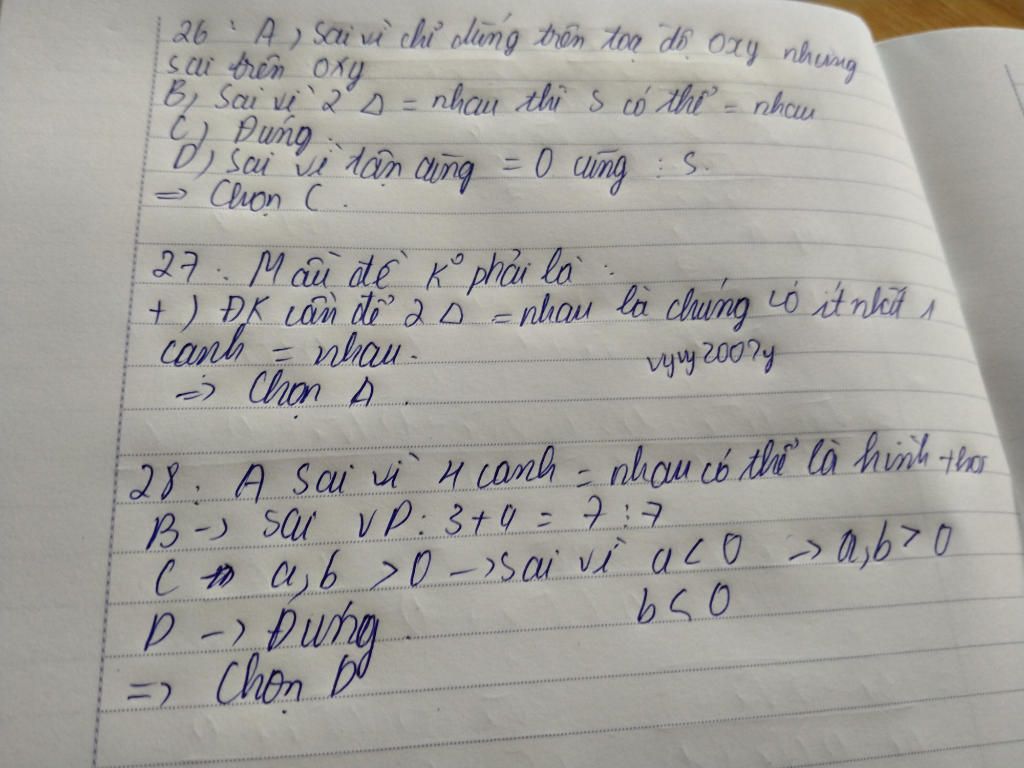 26 : A, Sai vì chỉ đúng trên toạ độ oxy nhưng
sai trên oxy
B, Sai vì 2 Δ = nhau thì S có thể = nhau
C) Đúng.
D) Sai vì tận cùng = 0 cũng : 5.
=> Chọn C.
27 : Mđề K° phải là :
+) ĐK cần để 2 Δ = nhau là chúng có ít nhất 1
cạnh = nhau.
vyvy2007y
=> Chọn A.
28 : A sai vì 4 cạnh = nhau có thể là hình thoi
B -> Sai VD: 3+4 = 7 : 7
C -> a,b > 0 -> sai vì a < 0 => a,b > 0
b < 0
D -> Đúng.
=> Chọn D